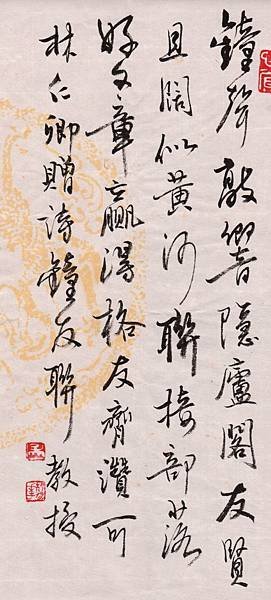 鐘聲敲響隱廬閣友賢
且闊似黃河聯接部落
好文章贏得格友齊讚可
林仁卿贈詩鐘友聯教授